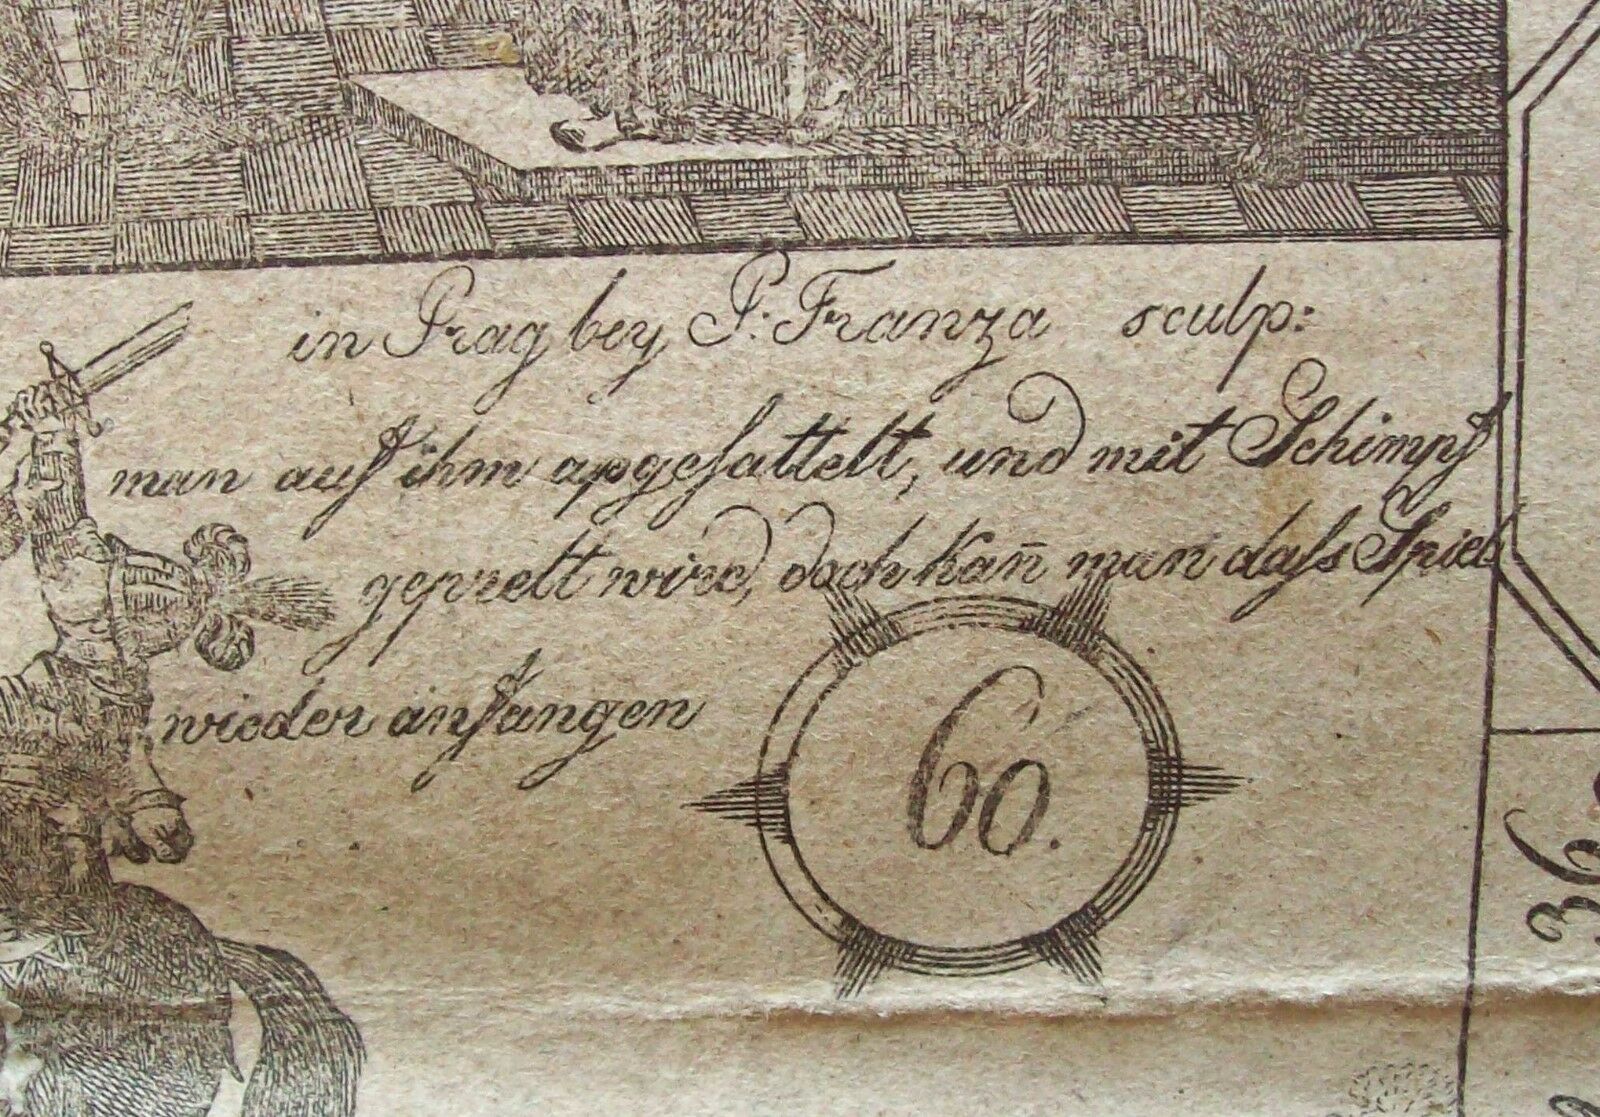 in Prag bey P. Franza sculp:
man auf ihm apgesattelt, und mit Schimpf
geprelt wird, doch kan̄ man dass Spiel
wieder anfangen
60.
36.